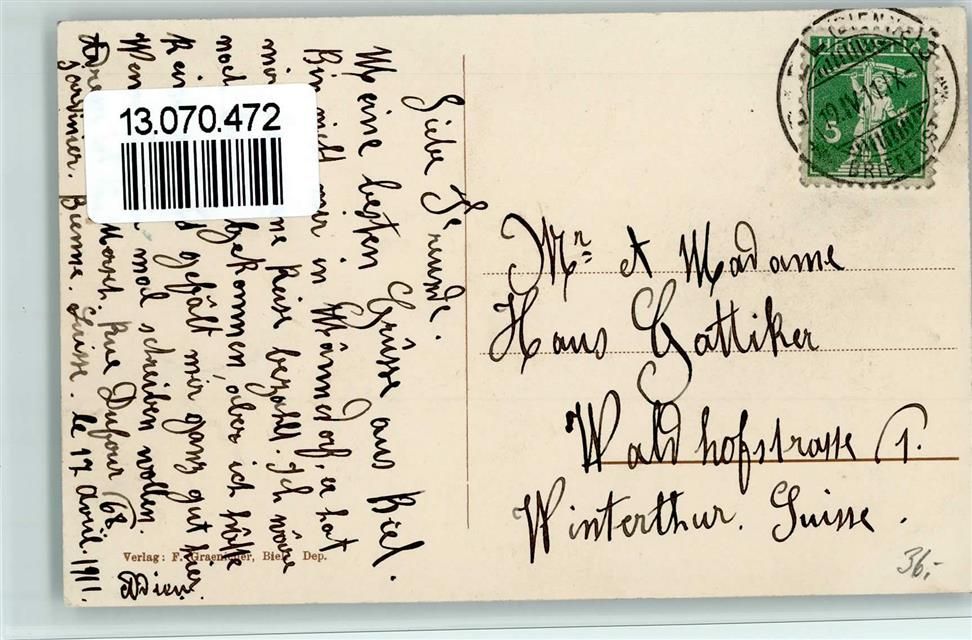 13.070.472
Liebe Freunde.
Meine besten Grüsse aus Biel.
Bin nicht mer in Männedorf, er hat
mir Reise bezahlt. Ich wäre
noch gekommen, aber ich hätte
kein gefält mir ganz gut hier
Wen mal schreiben wollen.
Adre Morsch. Rue Dufour 68.
Jardinier. Bienne. Suisse. le 17 avril. 1911.
Adieu.
Verlag: F. Graenicher, Biel. Dep.
HELVETIA
5
BRIEFPOST
Mr et Madame
Hans Gattiker
Waldhofstrasse 1.
Winterthur. Suisse.
36,-